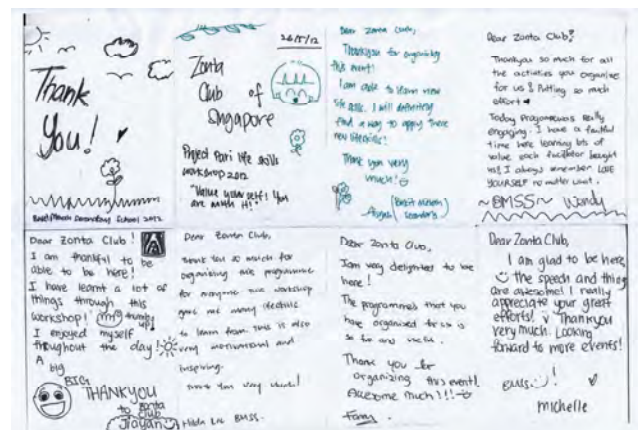 Thank
You!
Bukit Merah Secondary School 2012
26/5/12
Zonta
Club of
Singapore
Project Pari life skills
workshop 2012
"Value yourself! You
are worth it!"
Dear Zonta Club,
Thankyou for organising
this event!
I am able to learn new
life skills. I will definitely
find a way to apply these
new lifeskills!
Thank you very
much!
(Bukit Merah
Secondary)
Dear Zonta Club!
Thankyou so much for all
the activities you organise
for us! Putting so much
effort
Today Programme is Really
engaging. I have a
time here learning lots of
value each facilitator bought
us! I always remember LOVE
YOURSELF no matter what.
~BMSS~ Wendy
Dear Zonta Club!
I am thankful to be
able to be here!
I have learnt a lot of
things through this
workshop! thumbs up!
I enjoyed myself
throughout the day!
A
big
BIG
THANKYOU
to Zonta
Club
Jiayan
Dear Zonta Club,
Thank you so much for
organising this programme
for everyone. This workshop
gave me many
to learn from. This is also
very motivational and
inspiring.
Thank you very much!
Hilda BMSS.
Dear Zonta Club,
I am very delighted to be
here!
The programmes that you
have organised for us is
so fun and useful.
Thank you for
organizing this event!
Awesome much!!!
Dear Zonta Club,
I am glad to be here,
the speech and thing
are awesome! I really
appreciate your great
efforts! Thankyou
very much. Looking
forward to more events!
BMSS.
michelle